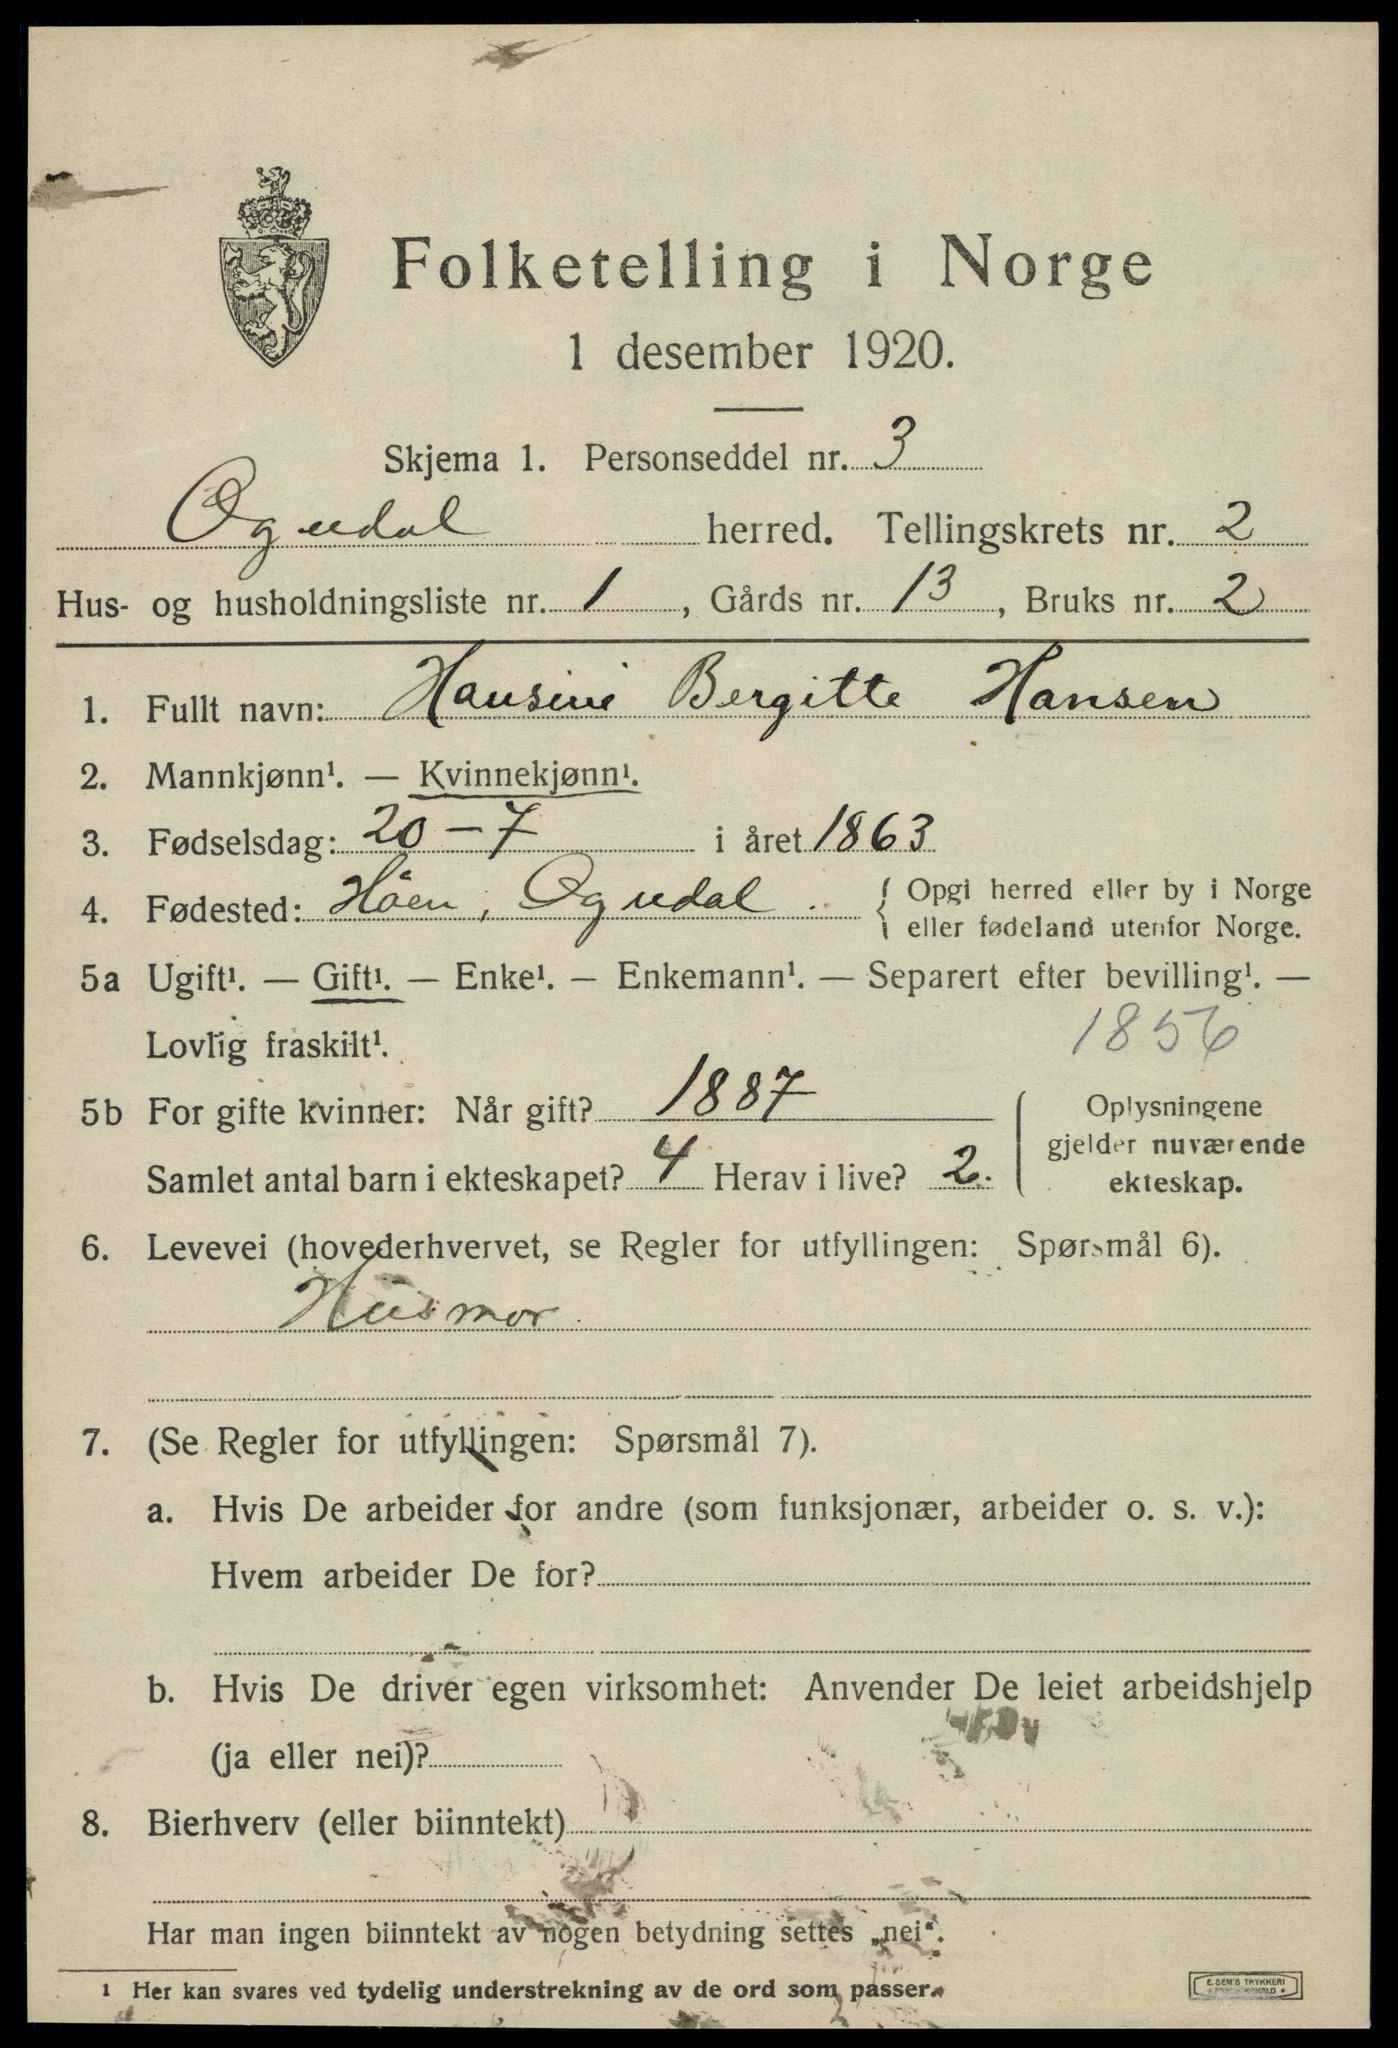 Folketelling i Norge
1 desember 1920.
Skjema 1. Personseddel nr. 3
Ogndal herred. Tellingskrets nr. 2
Hus- og husholdningsliste nr. 1, Gårds nr. 13, Bruks nr. 2
1. Fullt navn: Hansine Bergitte Hansen
2. Mannkjønn¹. — Kvinnekjønn¹.
3. Fødselsdag: 20 – 7 i året 1863
4. Fødested: Høen, Ogndal. { Opgi herred eller by i Norge
eller fødeland utenfor Norge.
5a Ugift¹. — Gift¹. — Enke¹. — Enkemann¹. — Separert efter bevilling¹. —
Lovlig fraskilt¹. 1856
5b For gifte kvinner: Når gift? 1887 Oplysningene
gjelder nuværende
Samlet antal barn i ekteskapet? 4 Herav i live? 2. ekteskap.
6. Levevei (hovederhvervet, se Regler for utfyllingen: Spørsmål 6).
Husmor.
7. (Se Regler for utfyllingen: Spørsmål 7).
a. Hvis De arbeider for andre (som funksjonær, arbeider o. s. v.):
Hvem arbeider De for?
b. Hvis De driver egen virksomhet: Anvender De leiet arbeidshjelp
(ja eller nei)?
8. Bierhverv (eller biinntekt)
Har man ingen biinntekt av nogen betydning settes „nei“.
1 Her kan svares ved tydelig understrekning av de ord som passer.
E. SEM'S TRYKKERI
FREDRIKSHALD